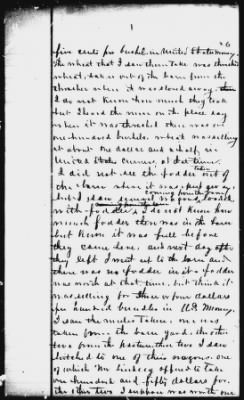 26
five cents per bushel in United States money.
The wheat that I saw them take was threshed
wheat, taken out of the barn from the
thrasher where it was stored away.
I do not know how much they took
but I heard the men on the place say
when it was threshed there was
one hundred bushels. Wheat was selling
at about one dollar and a half in
United States currency at that time.
I did not see the fodder taken out of
the barn where it was put away
but I saw coming from the farm wagons loaded
with fodder. I do not know how
much fodder there was in the barn
but know it was full before
they came here, and next day after
they left I went up to the barn and
there was no fodder in it. Fodder
was worth at that time, but think it
was selling for three or four dollars
per hundred bundles in U.S. Money.
I saw the mules taken. One was
taken from the barn yard, the other
two from the pasture. Other two I saw
hitched to one of their wagons. One
of which Mr. offered to take
one hundred and fifty dollars for.
The other two I suppose was worth one